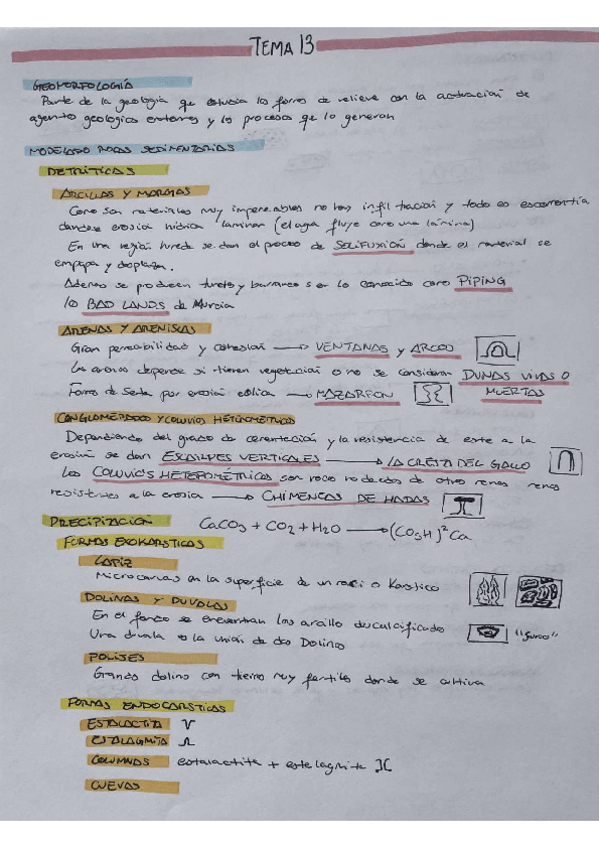 TEMA 13
GEOMORFOLOGIA
Parte de la geologia que estudia las formas de relieve con la actuación de
agentes geologicos externos y los procesos que lo generan
MODELADO ROCAS SEDIMENTARIAS
DETRITICAS
ARCILLAS Y MARGAS
Como son materiales muy impermeables no hay infiltración y todo es escorrentia
dandose erosión hidrica laminar (el agua fluye como una lámina)
En una region humeda se dan el proceso de SOLIFUXIÓN donde el material se
empapa y desplaza.
Ademas se producen tuneles y barrancos lo conocido como PIPING
los BAD LANDS de Murcia
ARENAS Y ARENISCAS
Gran permeabilidad y cohesion → VENTANAS y ARCOS
Las arenas depende si tienen vegetación o no se consideran DUNAS VIVAS O
MUERTAS
Forma de Seta por erosión eólica → MAZARRON
CONGLOMERADOS Y COLUVIOS HETEROMÉTRICOS
Dependiendo del grado de cementación y la resistencia de este a la
erosión se dan ESCARPES VERTICALES → LA CRESTA DEL GALLO
Los COLUVIOS HETEROMÉTRICOS son roca rodeados de otro menos
resistentes a la erosia → CHIMENEAS DE HADAS
PRECIPITACION CaCO3 + CO2 + H2O → (CO3H)2Ca
FORMAS EXOKARSTICAS
LAPIZ
Microcanales en la superficie de un Karstico
DOLINAS Y DUVALAS
En el fondo se encuentran las arcillas descalcificadas
Una duvala es la unión de dos Dolinas "Surco"
POLJES
Grandes dolinas con tierra muy fertiles donde se cultiva
FORMAS ENDOCARSTICAS
ESTALACTITA
ESTALAGMITA
COLUMNAS estalactita + estalagmita
CUEVAS